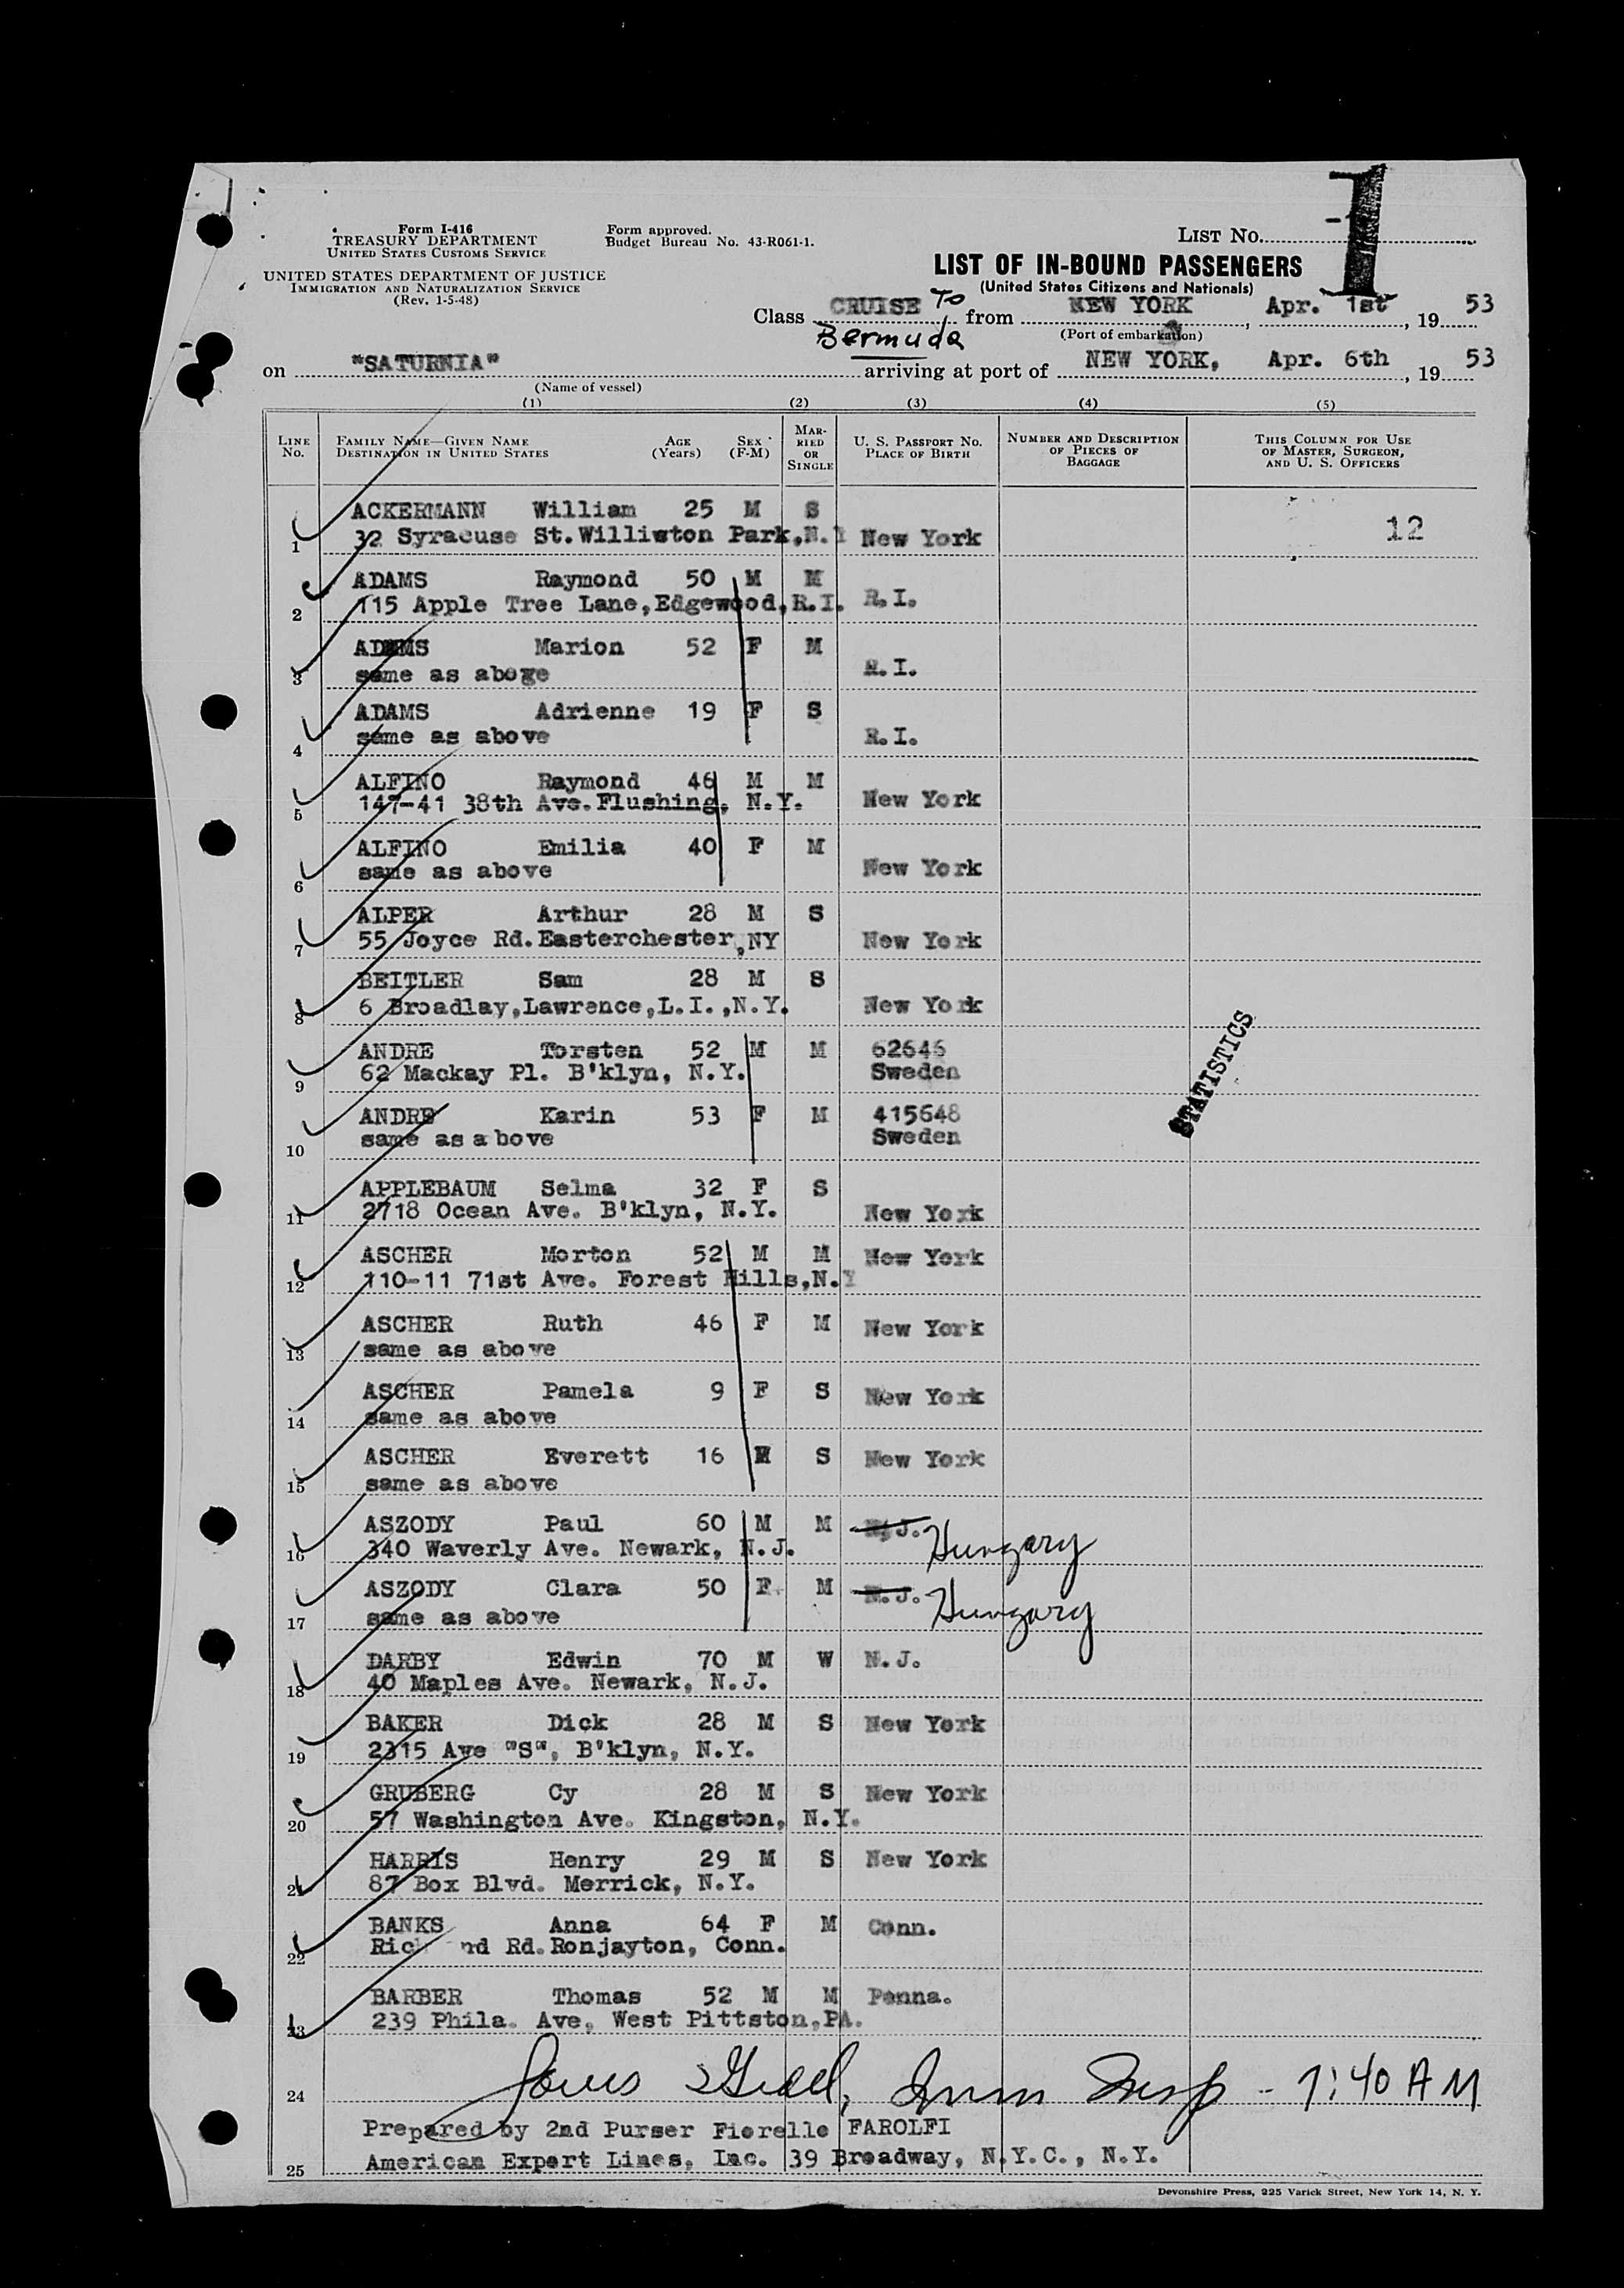 Form I-416
TREASURY DEPARTMENT
UNITED STATES CUSTOMS SERVICE
UNITED STATES DEPARTMENT OF JUSTICE
IMMIGRATION AND NATURALIZATION SERVICE
(Rev. 1-5-48)
Form approved.
Budget Bureau No. 43-R061-1.
LIST No. 1
LIST OF IN-BOUND PASSENGERS
(United States Citizens and Nationals)
Class CRUISE To Bermuda from NEW YORK, Apr. 1st, 19 53
(Port of embarkation)
on "SATURNIA" arriving at port of NEW YORK, Apr. 6th, 19 53
(Name of vessel)
(1) (2) (3) (4) (5)
LINE No. FAMILY NAME—GIVEN NAME DESTINATION IN UNITED STATES AGE (Years) SEX (F-M) MARRIED OR SINGLE U. S. PASSPORT NO. PLACE OF BIRTH NUMBER AND DESCRIPTION OF PIECES OF BAGGAGE THIS COLUMN FOR USE OF MASTER, SURGEON, AND U. S. OFFICERS
ACKERMANN William 25 M S
1 32 Syracuse St.Williston Park,N.Y New York 12
ADAMS Raymond 50 M M
2 115 Apple Tree Lane,Edgewood,R.I. R.I.
ADAMS Marion 52 F M
3 same as above R.I.
ADAMS Adrienne 19 F S
4 same as above R.I.
ALFINO Raymond 46 M M
5 147-41 38th Ave.Flushing, N.Y. New York
ALFINO Emilia 40 F M
6 same as above New York
ALPER Arthur 28 M S
7 55 Joyce Rd.Easterchester,NY New York
BEITLER Sam 28 M S
8 6 Broadlay,Lawrence,L.I.,N.Y. New York
ANDRE Torsten 52 M M 62646
9 62 Mackay Pl. B'klyn, N.Y. Sweden
ANDRE Karin 53 F M 415648
10 same as a bove Sweden
STATISTICS
APPLEBAUM Selma 32 F S
11 2718 Ocean Ave. B'klyn, N.Y. New York
ASCHER Morton 52 M M New York
12 110-11 71st Ave. Forest Hills,N.Y
ASCHER Ruth 46 F M New York
13 same as above
ASCHER Pamela 9 F S New York
14 same as above
ASCHER Everett 16 M S New York
15 same as above
ASZODY Paul 60 M M N.J. Hungary
16 340 Waverly Ave. Newark, N.J.
ASZODY Clara 50 F M N.J. Hungary
17 same as above
DARBY Edwin 70 M W N.J.
18 40 Maples Ave. Newark, N.J.
BAKER Dick 28 M S New York
19 2315 Ave "S", B'klyn, N.Y.
GRUBERG Cy 28 M S New York
20 57 Washington Ave. Kingston, N.Y.
HARRIS Henry 29 M S New York
21 87 Box Blvd. Merrick, N.Y.
BANKS Anna 64 F M Conn.
22 Rd.Ronjayton, Conn.
BARBER Thomas 52 M M Penna.
23 239 Phila. Ave, West Pittston,PA.
24 Imm Insp - 7:40 AM
Prepared by 2nd Purser Fiorello FAROLFI
25 American Export Lines, Inc. 39 Broadway, N.Y.C., N.Y.
Devonshire Press, 225 Varick Street, New York 14, N. Y.